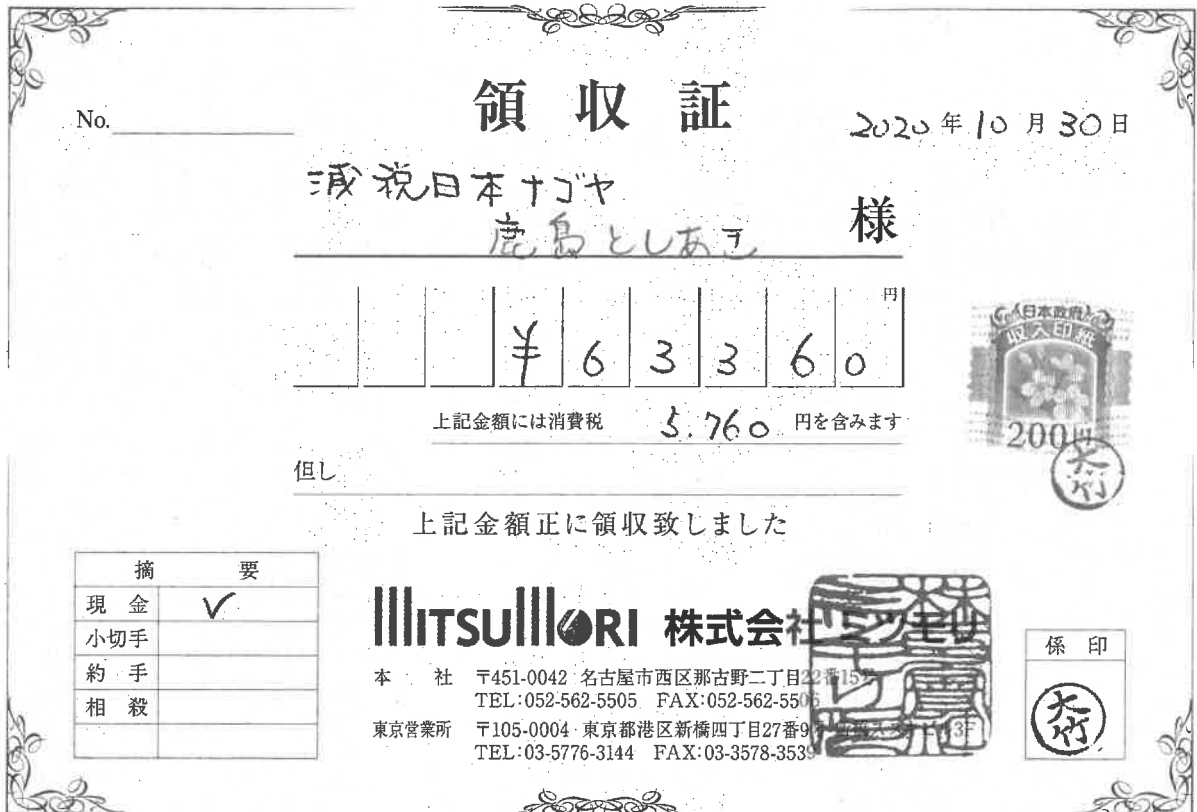 領収証
No.
2020年10月30日
減税日本ナゴヤ
鹿島としあき 様
円
¥63360
上記金額には消費税 5.760 円を含みます
但し
上記金額正に領収致しました
日本政府
収入印紙
200円
大竹
摘要
現金 ✓
小切手
約手
相殺
MITSUMORI 株式会社ミツモリ
本社 〒451-0042 名古屋市西区那古野二丁目22番15号
TEL:052-562-5505 FAX:052-562-5506
東京営業所 〒105-0004 東京都港区新橋四丁目27番9
TEL:03-5776-3144 FAX:03-3578-3539
係印
大竹